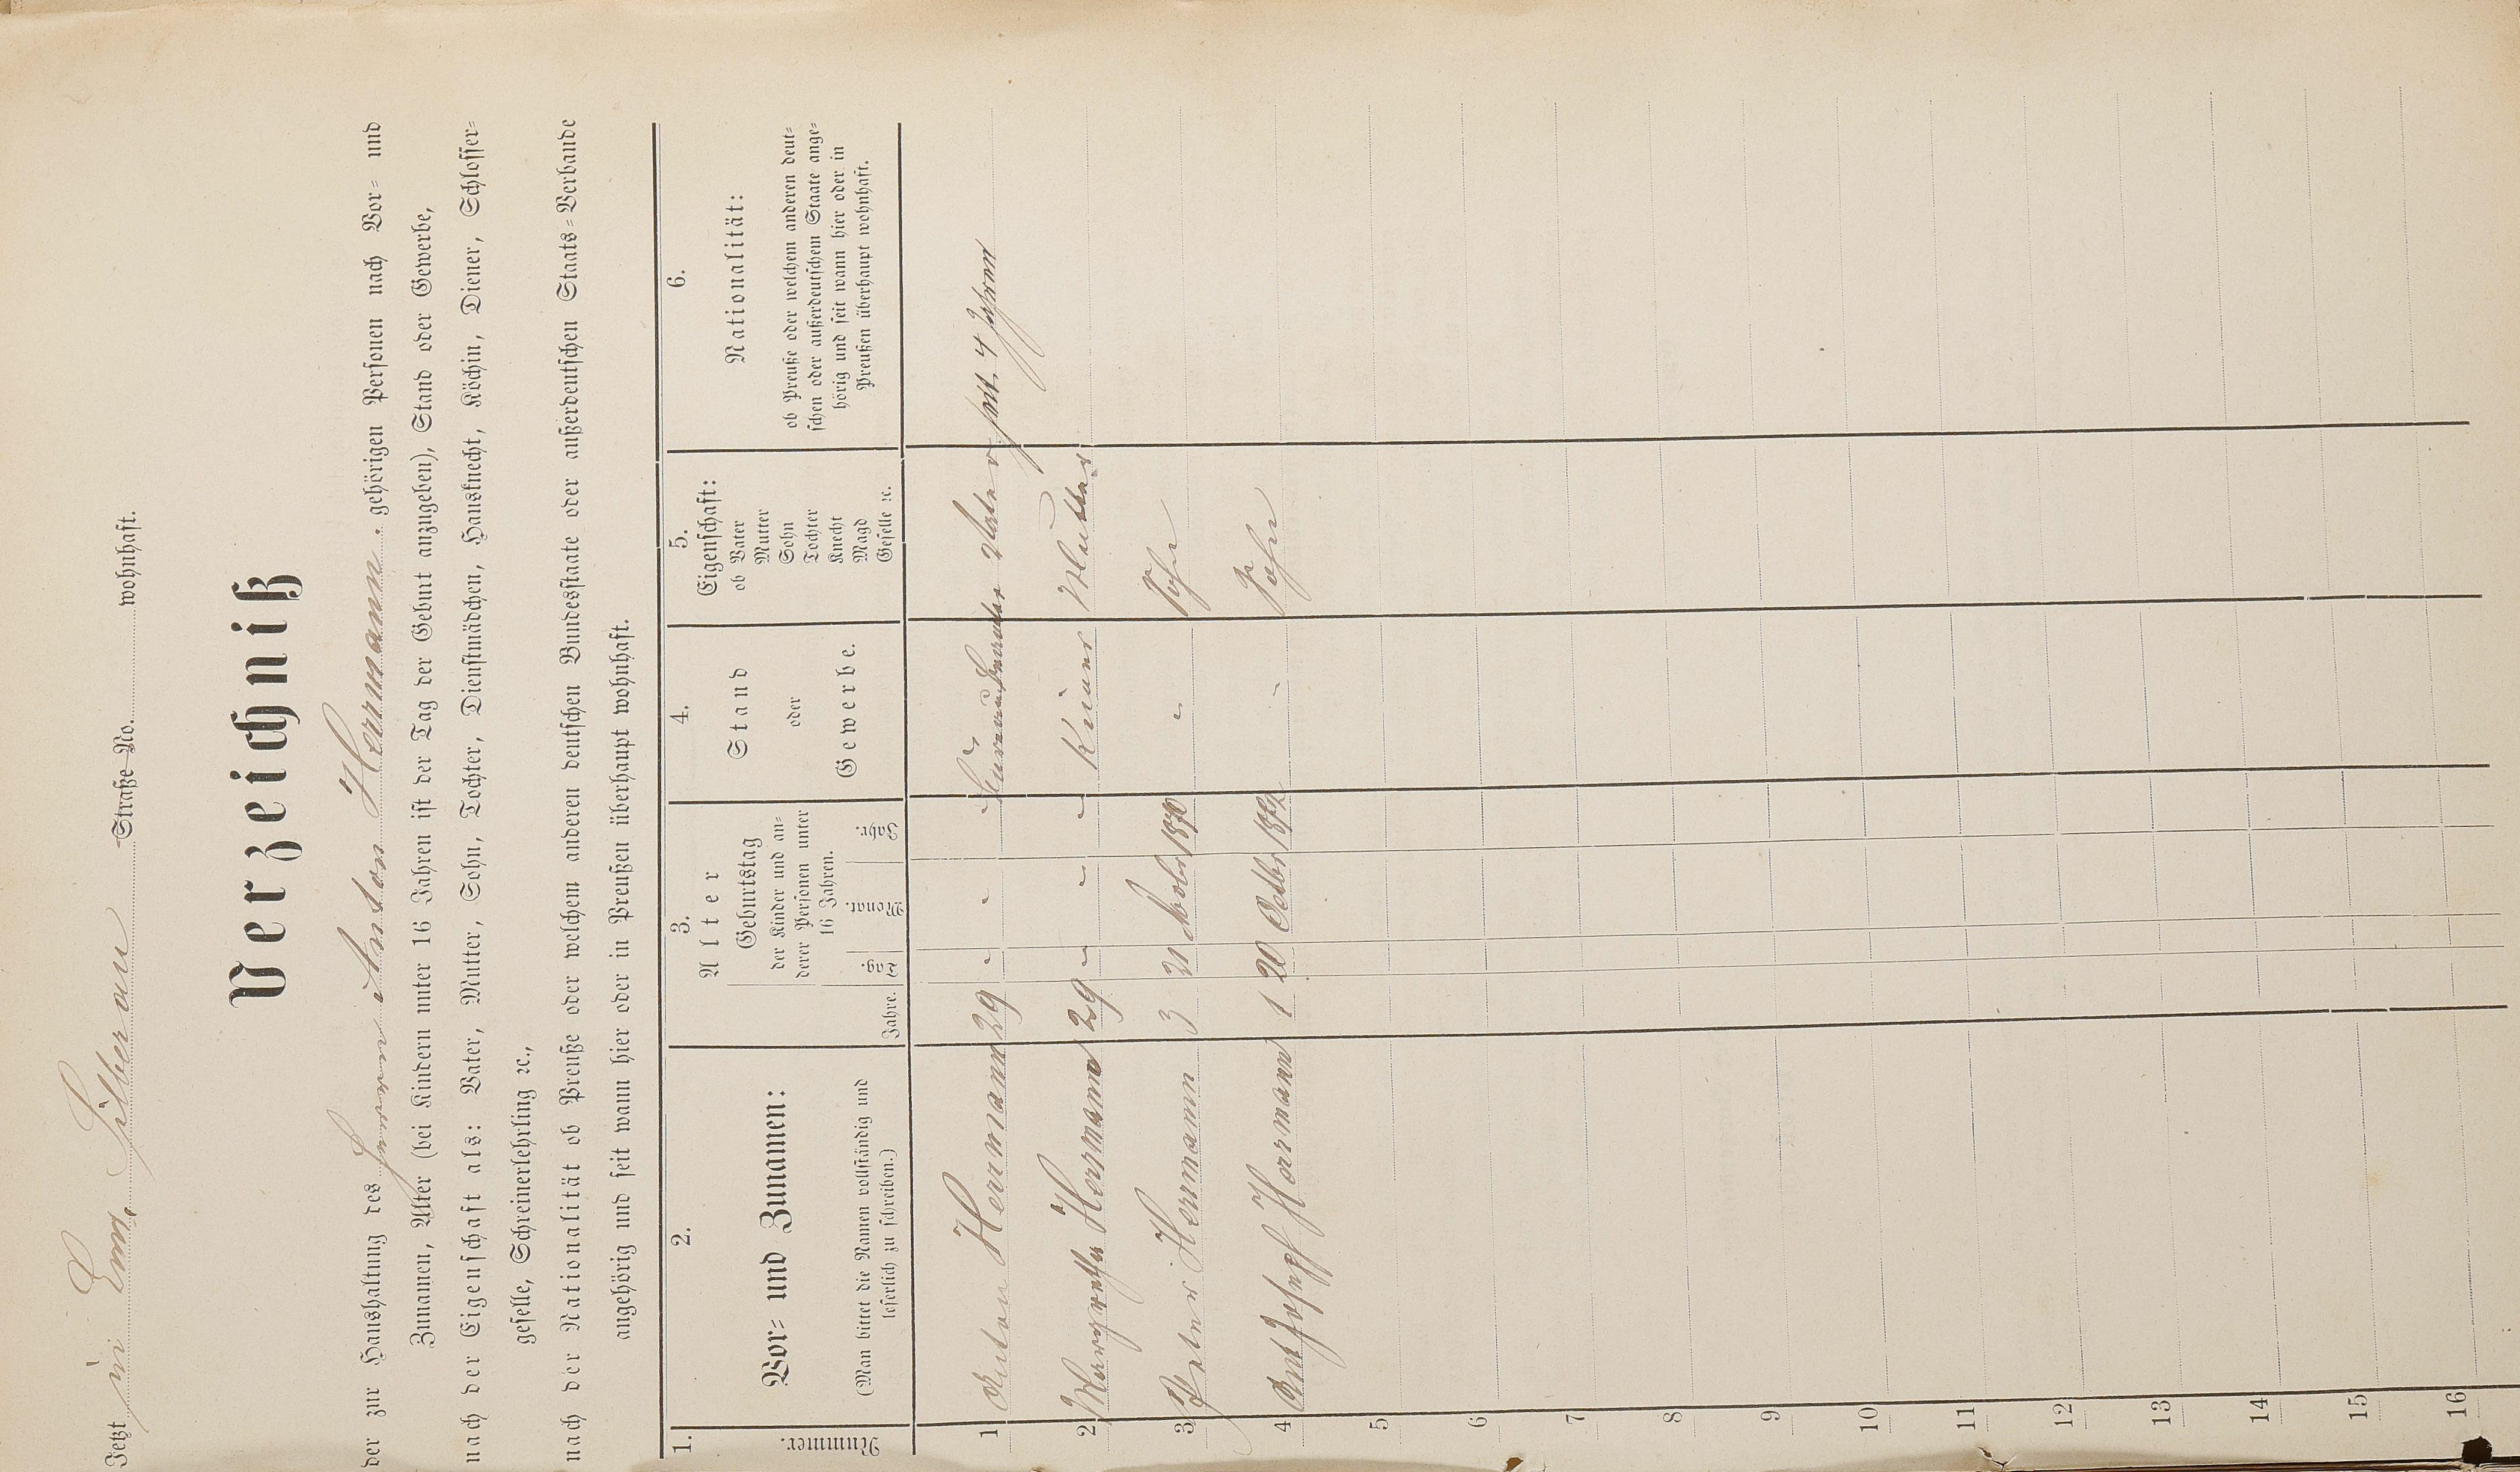 Jetzt in Ems, Silberau Straße No. wohnhaft.
Verzeichniß
der zur Haushaltung des Herrn Anton Herrmann. gehörigen Personen nach Vor- und
Zunamen, Alter (bei Kindern unter 16 Jahren ist der Tag der Geburt anzugeben), Stand oder Gewerbe,
nach der Eigenschaft als: Vater, Mutter, Sohn, Tochter, Dienstmädchen, Hausknecht, Köchin, Diener, Schlosser-
geselle, Schreinerlehrling ꝛc.,
nach der Nationalität ob Preuße oder welchem anderen deutschen Bundesstaate oder außerdeutschen Staats-Verbande
angehörig und seit wann hier oder in Preußen überhaupt wohnhaft.
1.
Nummer.
2.
Vor- und Zunamen:
(Man bittet die Namen vollständig und
leserlich zu schreiben.)
3.
Alter
Jahre.
Geburtstag
der Kinder und an-
derer Personen unter
16 Jahren.
Tag. Monat. Jahr.
4.
Stand
oder
Gewerbe.
5.
Eigenschaft:
ob Vater
Mutter
Sohn
Tochter
Knecht
Magd
Geselle ꝛc.
6.
Nationalität:
ob Preuße oder welchem anderen deut-
schen oder außerdeutschem Staate ange-
hörig und seit wann hier oder in
Preußen überhaupt wohnhaft.
1 Anton Herrmann 29 - - - Vater seit 4 Jahren
2 Margretha Herrmann 29 - - - Keines Mutter
3 Peter Herrmann 3 21 1870 - Sohn
4 Ant Joseph Herrmann 1 20 Octbr 1872 - Sohn
5
6
7
8
9
10
11
12
13
14
15
16